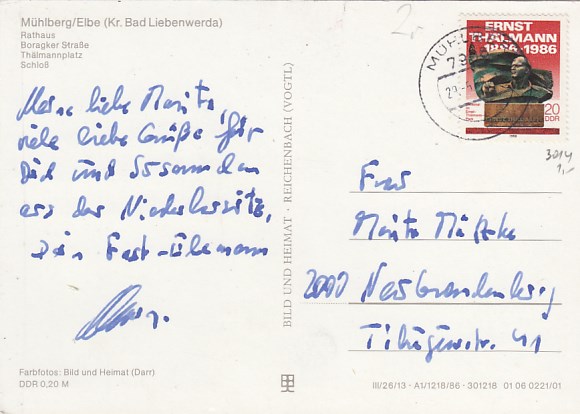 Mühlberg/Elbe (Kr. Bad Liebenwerda)
Rathaus
Boragker Straße
Thälmannplatz
Schloß
Meine liebe Marita,
viele liebe Grüße für
Dich und Susann
aus der Niederlausitz,
Dein Fast-Ehemann
Farbfotos: Bild und Heimat (Darr)
DDR 0,20 M
BILD UND HEIMAT · REICHENBACH (VOGTL)
2,-
ERNST
THÄLMANN
1886-1986
20
DDR
MÜHLBERG
3014
1,-
Frau
Marita
2000 Neubrandenburg
41
III/26/13 · A1/1218/86 · 301218 01 06 0221/01